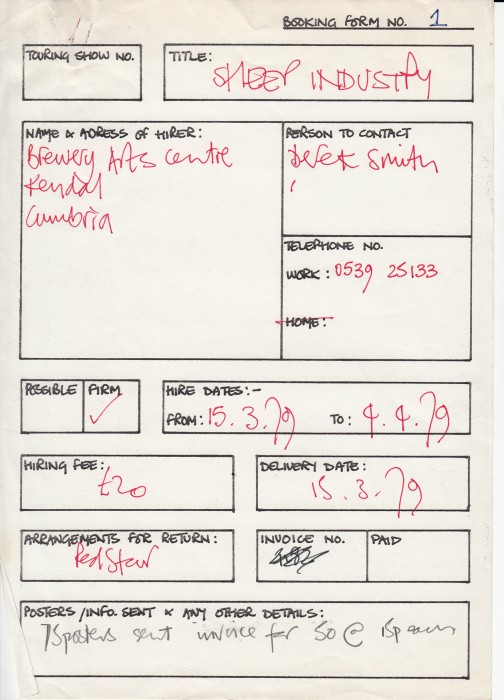 BOOKING FORM NO. 1
TOURING SHOW NO.
TITLE:
SHEEP INDUSTRY
NAME & ADRESS OF HIRER:
Brewery Arts Centre
Kendal
Cumbria
PERSON TO CONTACT
Derek Smith
TELEPHONE NO.
WORK: 0539 25133
HOME:
POSSIBLE
FIRM ✓
HIRE DATES:-
FROM: 15.3.79 TO: 4.4.79
HIRING FEE:
£20
DELIVERY DATE:
15.3.79
ARRANGEMENTS FOR RETURN:
Red Star
INVOICE NO.
PAID
POSTERS /INFO. SENT & ANY OTHER DETAILS:
75 posters sent invoice for 50 @ 15p each